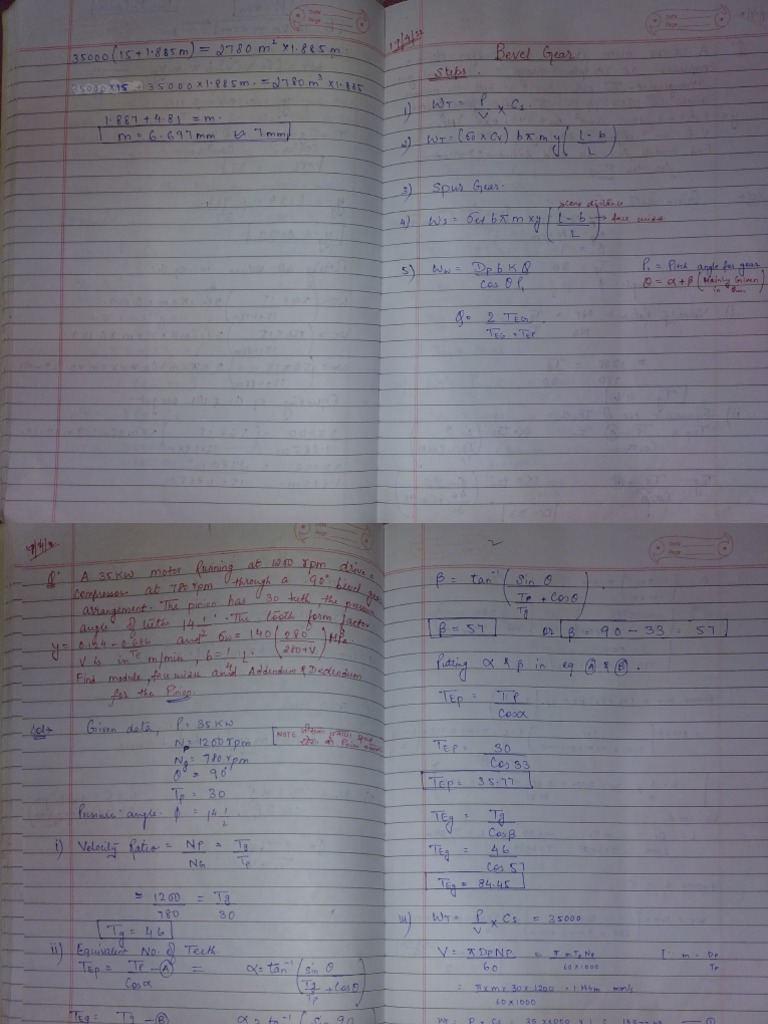 35000(15+1.885m) = 2780 m² × 1.885m
35000×15 35000×1.885m = 2780 m³ × 1.885
1.887 + 4.81 = m.
m = 6.697mm ≈ 7mm
Bevel Gear
Steps.
1) WT = P/V × Cs
2) WT = (σo × Cv) bπ m y (L-b/L)
3) Spur Gear.
4) Ws = σes bπ m × y (L-b/L) → face width
5) Ww = Dp b K Q / cos θP1
P1 = Pitch angle for gear
θ = α+β (Mainly Given in Ques
Q = 2 TEG / TEG + TEP
Q. A 35KW motor Running at 1200 rpm drive a
Compressor at 780 rpm through a 90° bevel gear
arrangement. The pinion has 30 teeth, the pressure
angle of teeth 14 1/2°. The tooth form factor
y = 0.124 - 0.686/TE and σw = 140 (280/280+V) MPa.
V is in m/min, b = 1/4 L.
Find module, face width and Addendum & Dedendum
for the Pinion.
Soln Given data, P = 35 KW
NP = 1200 rpm
Ng = 780 rpm
θ = 90°
TP = 30
Pressure angle ϕ = 14 1/2
i) Velocity Ratio = NP/NG = Tg/TP
= 1200/780 = Tg/30
Tg = 46
ii) Equivalent No. of Teeth
TEP = TP/Cosα - Ⓐ = α = tan⁻¹ (sin θ / Tg/TP + cosθ)
TEG = Tg - Ⓑ
β = tan⁻¹ (Sin θ / TP/Tg + Cosθ)
β = 57 or β = 90 - 33 = 57
Putting α & β in eq Ⓐ & Ⓑ.
TEP = TP/Cosα
TEP = 30/Cos 33
TEP = 35.77
TEg = Tg/Cosβ
TEg = 46/Cos 57
TEg = 84.45
iii) WT = P/V × Cs = 35000
V = πDPNP/60 = π m TP NP/60×1000 [∵ m = DP/TP
= π×m×30×1200/60×1000